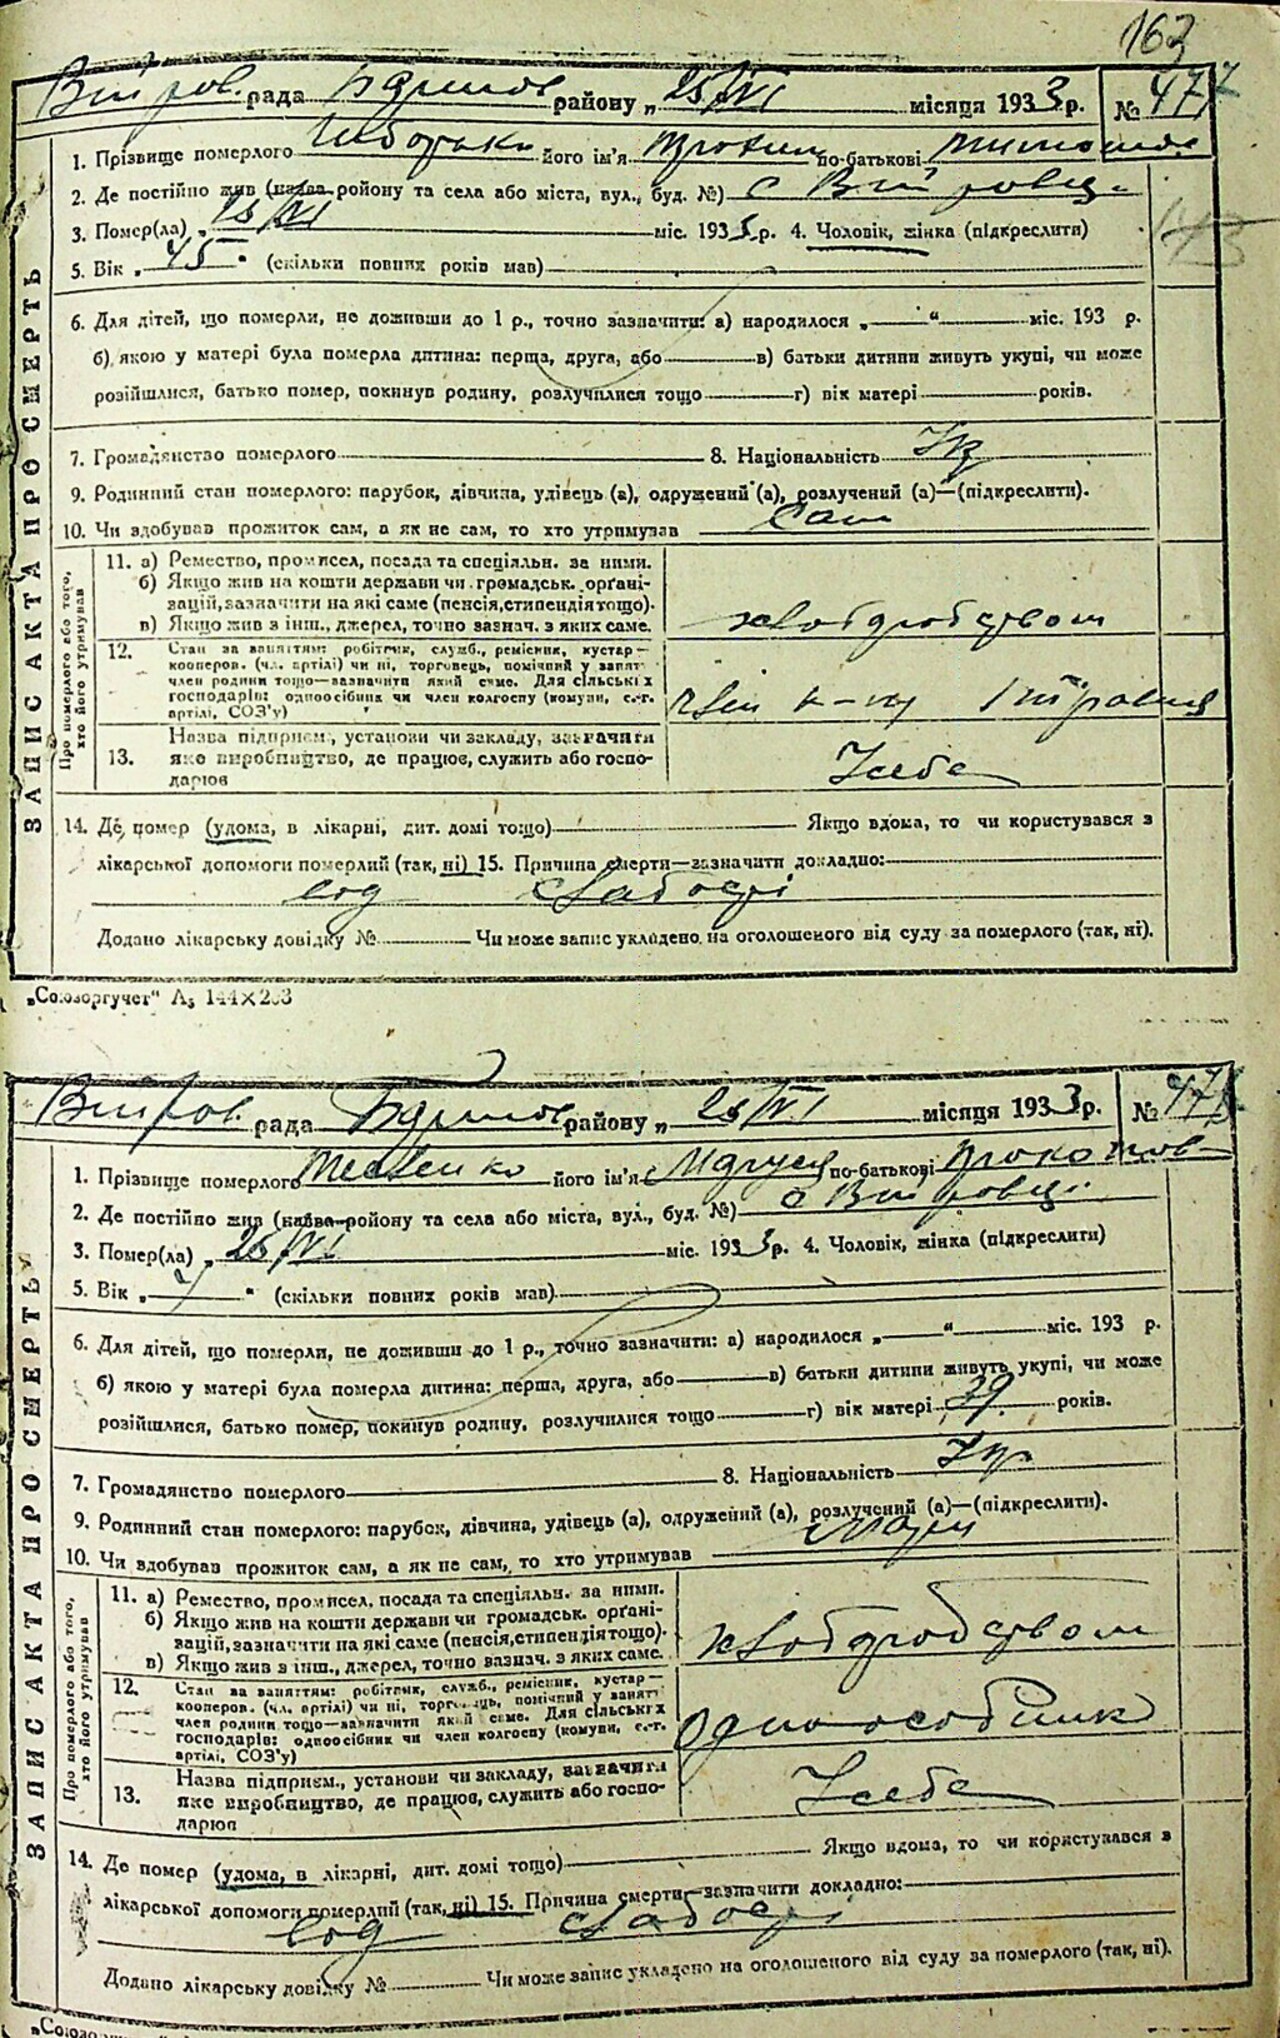 163
рада району „ 25/VI місяця 1933 р. № 477
1. Прізвище померлого його ім'я по-батькові
2. Де постійно жив (назва ройону та села або міста, вул., буд. №) с
3. Помер(ла) „ 25/VI міс. 1933 р. 4. Чоловік, жінка (підкреслити)
5. Вік „ 45 " (скільки повних років мав)
6. Для дітей, що померли, не доживши до 1 р., точно зазначити: а) народилося „ " міс. 193 р.
б) якою у матері була померла дитина: перша, друга, або в) батьки дитини живуть укупі, чи може
розійшлися, батько помер, покинув родину, розлучилися тощо г) вік матері років.
7. Громадянство померлого 8. Національність Укр
9. Родинний стан померлого: парубок, дівчина, удівець (а), одружений (а), розлучений (а)—(підкреслити).
10. Чи здобував прожиток сам, а як не сам, то хто утримував сам
ЗАПИС АКТА ПРО СМЕРТЬ
Про померлого або того,
хто його утримував
11. а) Ремество, промисел, посада та спеціяльн. за ними.
б) Якщо жив на кошти держави чи громадськ. орґані-
зацій, зазначити на які саме (пенсія, стипендія тощо).
в) Якщо жив з інш., джерел, точно зазнач. з яких саме.
хлібробством
12. Стан за заняттям: робітник, служб., ремісник, кустар—
кооперов. (чл. артілі) чи ні, торговець, помічний у занят.
член родини тощо—зазначити який саме. Для сільських
господарів: одноосібник чи член колгоспу (комуни, с.-г.
артілі, СОЗ'у)
член
13. Назва підприєм., установи чи закладу, зазначити
яке виробництво, де працює, служить або госпо-
дарює
У себе
14. Де помер (удома, в лікарні, дит. домі тощо) Якщо вдома, то чи користувався з
лікарської допомоги померлий (так, ні) 15. Причина смерти—зазначити докладно:
від слабості
Додано лікарську довідку № Чи може запис укладено на оголошеного від суду за померлого (так, ні).
„Союзоргучет" А5 144×203
рада району „ 26/VI місяця 1933 р. №
1. Прізвище померлого його ім'я Маруся по-батькові
2. Де постійно жив (назва ройону та села або міста, вул., буд. №) с
3. Помер(ла) „ 26/VI міс. 1933 р. 4. Чоловік, жінка (підкреслити)
5. Вік „ 7 " (скільки повних років мав)
6. Для дітей, що померли, не доживши до 1 р., точно зазначити: а) народилося „ " міс. 193 р.
б) якою у матері була померла дитина: перша, друга, або в) батьки дитини живуть укупі, чи може
розійшлися, батько помер, покинув родину, розлучилися тощо г) вік матері 39 років.
7. Громадянство померлого 8. Національність Укр
9. Родинний стан померлого: парубок, дівчина, удівець (а), одружений (а), розлучений (а)—(підкреслити).
10. Чи здобував прожиток сам, а як не сам, то хто утримував мати
ЗАПИС АКТА ПРО СМЕРТЬ
Про померлого або того,
хто його утримував
11. а) Ремество, промисел, посада та спеціяльн. за ними.
б) Якщо жив на кошти держави чи громадськ. орґані-
зацій, зазначити на які саме (пенсія, стипендія тощо).
в) Якщо жив з інш., джерел, точно зазнач. з яких саме.
хлібробством
12. Стан за заняттям: робітник, служб., ремісник, кустар—
кооперов. (чл. артілі) чи ні, торговець, помічний у занят.
член родини тощо—зазначити який саме. Для сільських
господарів: одноосібник чи член колгоспу (комуни, с.-г.
артілі, СОЗ'у)
одноосібник
13. Назва підприєм., установи чи закладу, зазначити
яке виробництво, де працює, служить або госпо-
дарює
У себе
14. Де помер (удома, в лікарні, дит. домі тощо) Якщо вдома, то чи користувався з
лікарської допомоги померлий (так, ні) 15. Причина смерти—зазначити докладно:
від слабості
Додано лікарську довідку № Чи може запис укладено на оголошеного від суду за померлого (так, ні).